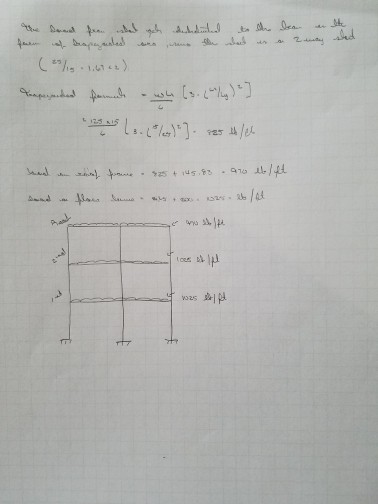 The load from slab gets distributed to the beam in the
form of trapezoidal one, since the slab is a 2 way slab
(25/15 = 1.67 < 2)
Trapezoidal formula = w lx/6 [3 - (lx/ly)²]
= 125 × 15/6 [3 - (15/25)²] = 825 lb/ft
load in roof frame = 825 + 145.83 = 970 lb/ft
load in floor = 825 + 200 = 1025 lb/ft
Roof
970 lb/ft
2nd
1025 lb/ft
1st
1025 lb/ft